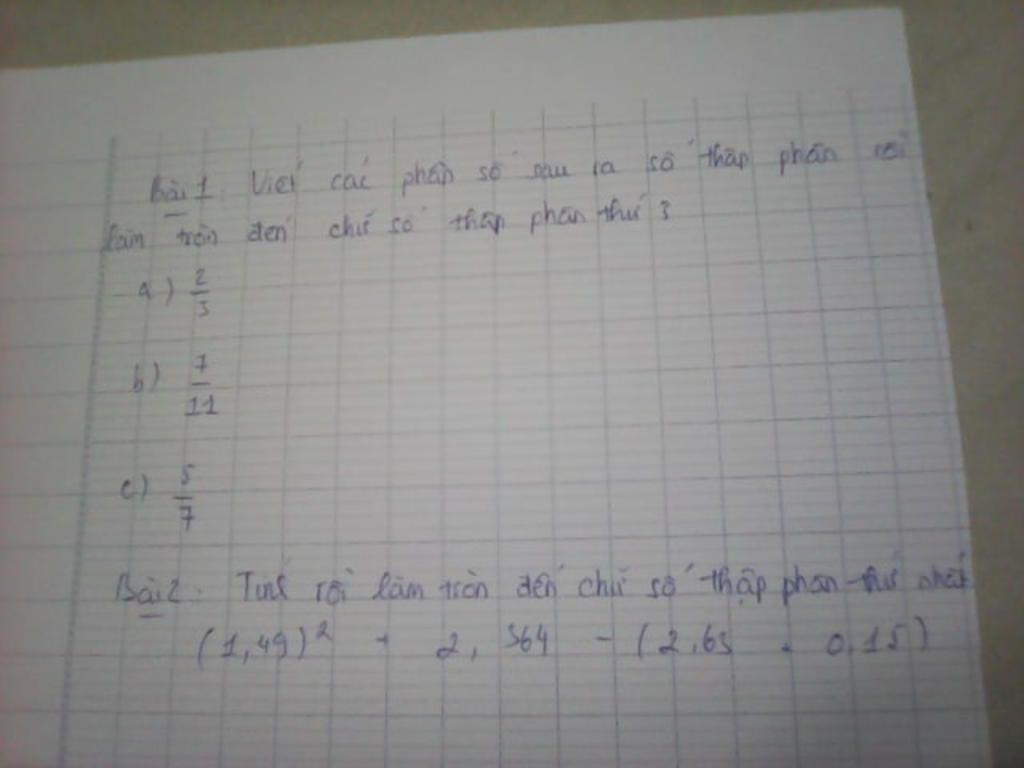 Bài 1. Viết các phân số sau ra số thập phân rồi
làm tròn đến chữ số thập phân thứ 3
a) 2/3
b) 7/11
c) 5/7
Bài 2. Tính rồi làm tròn đến chữ số thập phân thứ nhất
(1,49)² + 2,364 - (2,63 . 0,15)